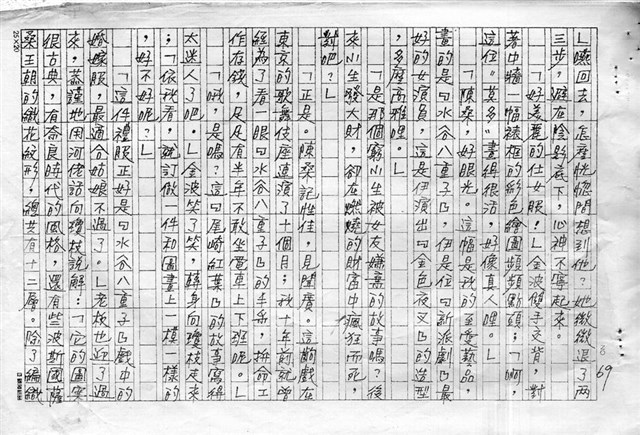 」曉回去，怎麼恍惚間想到他？她微微退了兩
三步，避在陰影底下，心神不寧起來。
「好美麗的仕女服。」金波雙手交背，對
著中牆一幅鏡框的彩色繪圖頻頻點頭：「啊，
這位『英多』畫得很活，好像真人哩。」
「陳桑，好眼光。這幅是秋的至愛藝品，
畫的是『水谷八重子』，伊是位『新派劇』最
好的女演員，這是伊演出『金色夜叉』的造型
，多麼高雅哩。」
「是那個窮小生被女友嫌棄的故事嗎？後
來小生發大財，卻在燃燒的財富中瘋狂而死，
對吧？」
「正是。陳桑記性佳，見聞廣。這齣戲在
東京的歌舞伎座連演了十個月；秋十年前就曾
經為了看一眼『水谷八重子』的手采，拚命工
作存錢，足足有半年不敢坐電車上下班呢。」
「哦，是嗎？這『尾崎紅葉』的故事寫得
太迷人了吧。」金波笑了笑，轉身向瓊枝走來
：「依秋看，就訂做一件和圖畫上一模一樣的
，好不好呢？」
「這件禮服正好是『水谷八重子』戲中的
婚嫁服，最適合姑娘不過了。」老板也迎了過
來，恭謹地用河佬話向瓊枝說解：「它的圖案
很古典，有奈良時代的風格，還有些波斯國薩
桑王朝的織花紋形，總共有十二層。除了編織
69
25×20